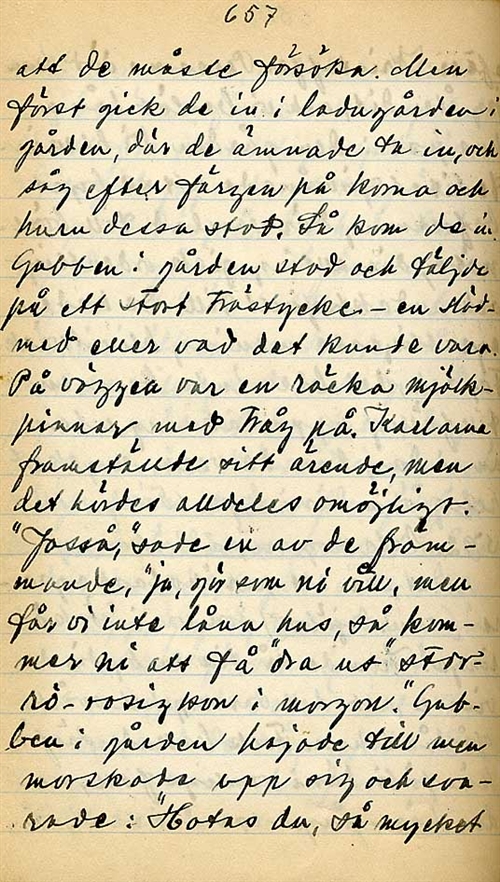 657
att de måste försöka. Men
först gick de in i ladugården i
gården, där de ämnade ta in, och
såg efter färgen på korna och
huru dessa stod. Så kom de in.
Gubben i gården stod och täljde
på ett stort trästycke – en släd-
med eller vad det kunde vara.
På väggen var en räcka mjölk-
pinnar med tråg på. Karlarna
framställde sitt ärende, men
det hördes alldeles omöjligt.
"Jasså," sade en av de främ-
mande, "ja, gör som ni vill, men
får vi inte låna hus, så kom-
mer ni att få "dra ut" stor-
rö-rosig kon i morgon." Gub-
ben i gården hajade till men
morskade upp sig och sva-
rade: "Hotas du, så mycket